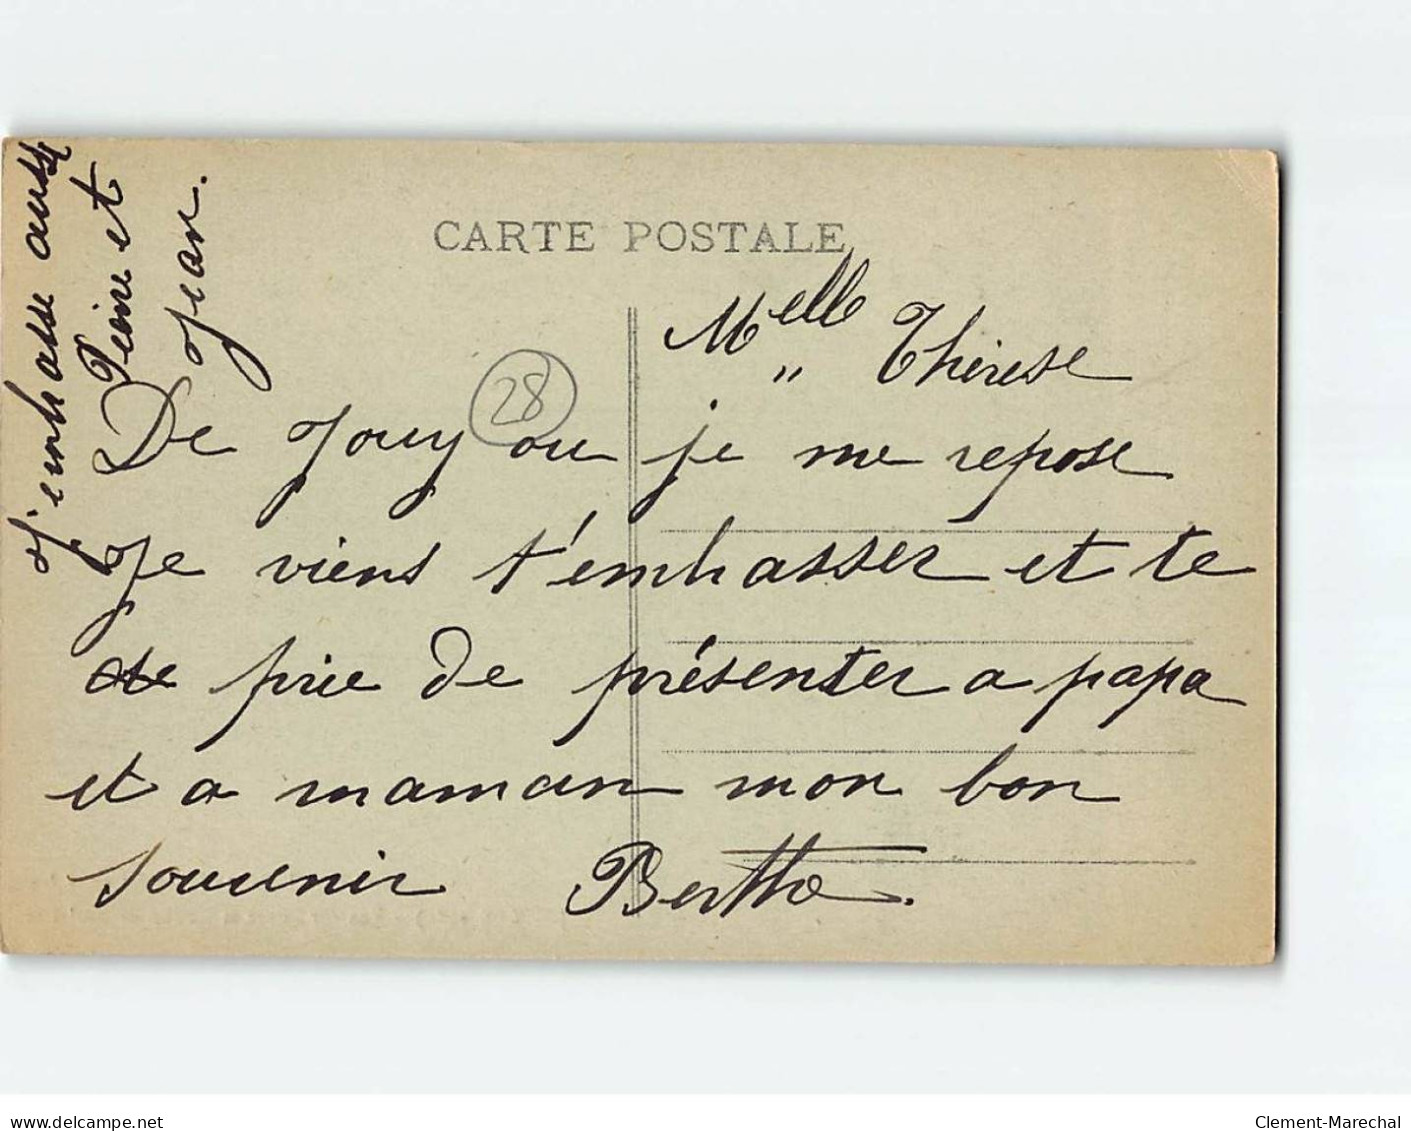 CARTE POSTALE
Melle Thérèse
28
De Jouy ou je me repose
Je viens t'embrasser et te
de prie de présenter a papa
et a maman mon bon
souvenir Berthe.
J'embrasse aussi
Pierre et
Jean.
www.delcampe.net
Clement-Marechal